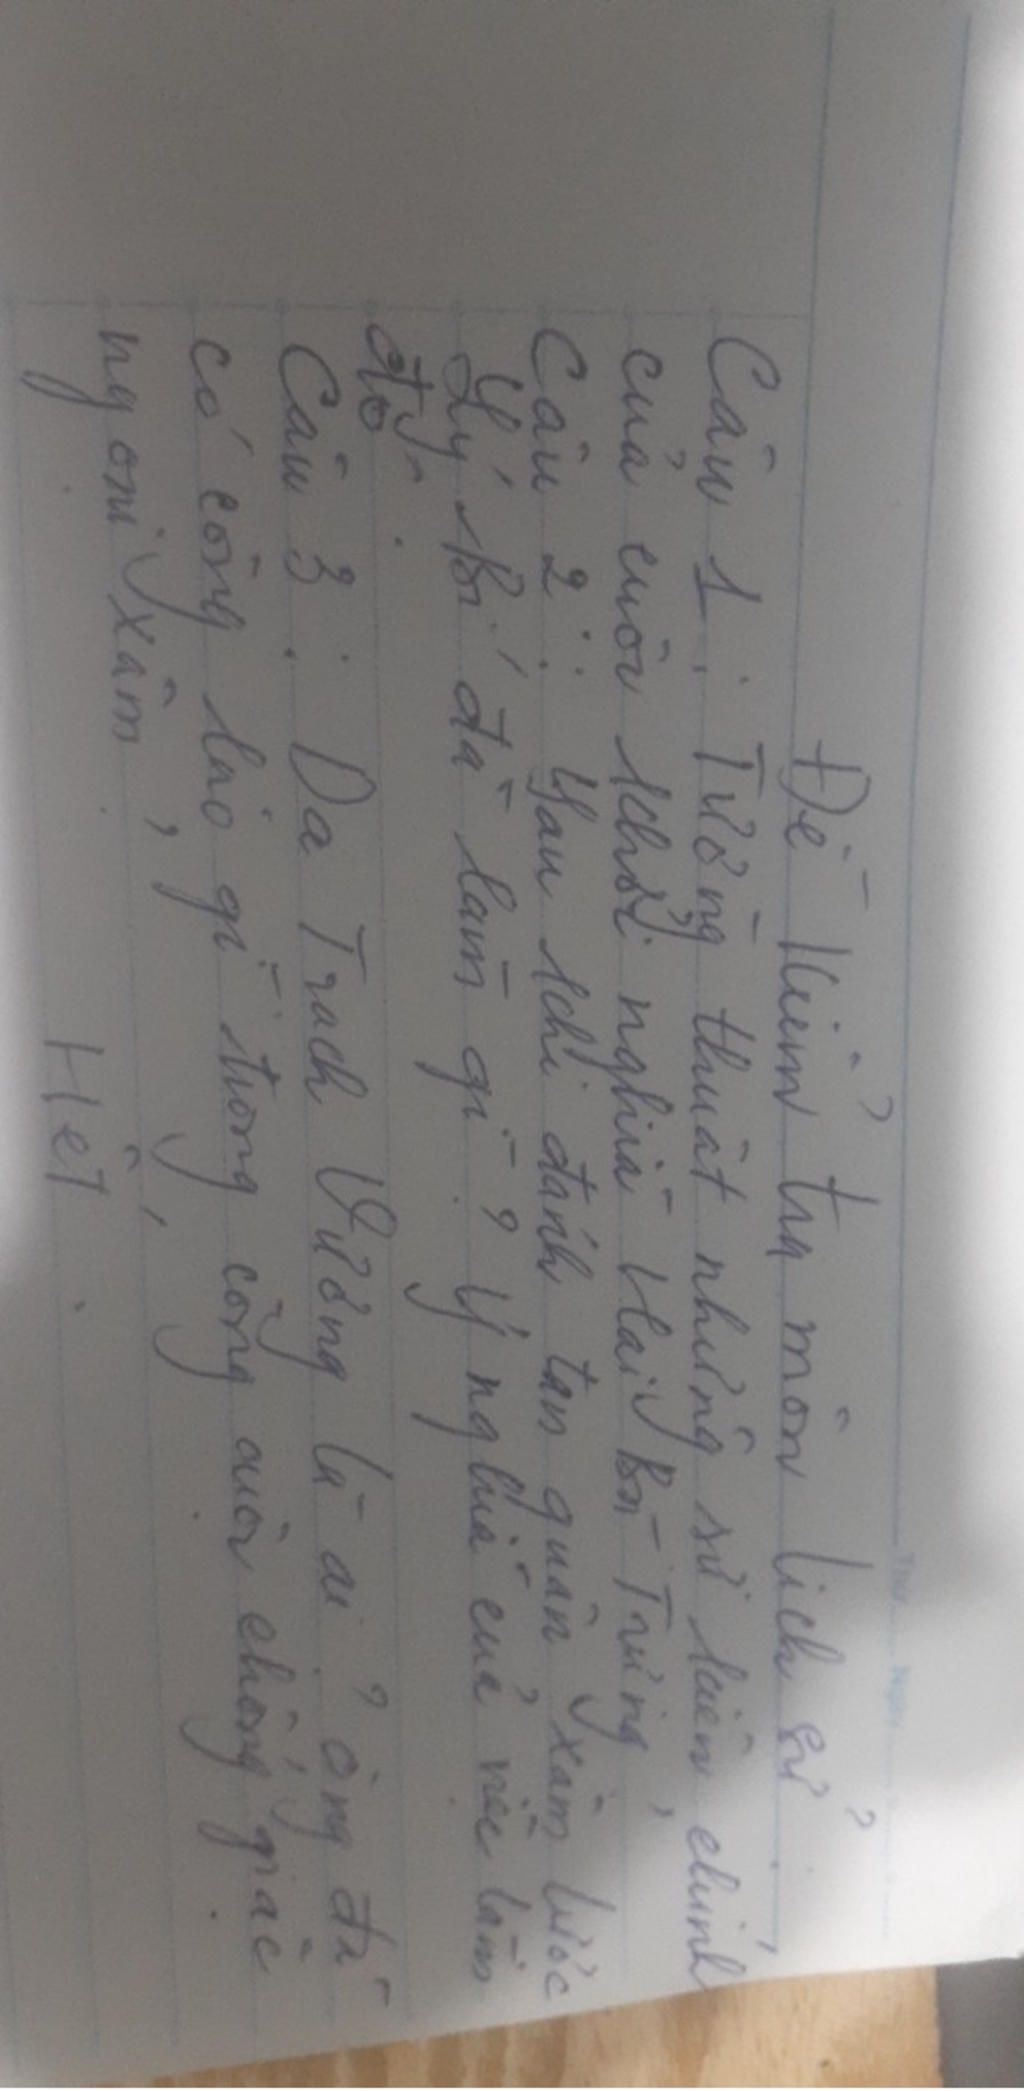 Đề kiểm tra môn lịch sử
Câu 1: Tường thuật những sự kiện chính
của cuộc khởi nghĩa Hai Bà Trưng
Câu 2: Sau khi đánh tan quân xâm lược
Lý Bí đã làm gì? Ý nghĩa của việc làm
đó.
Câu 3: Dạ Trạch Vương là ai? ông đã
có công lao gì trong công cuộc chống giặc
ngoại xâm,
Hết.